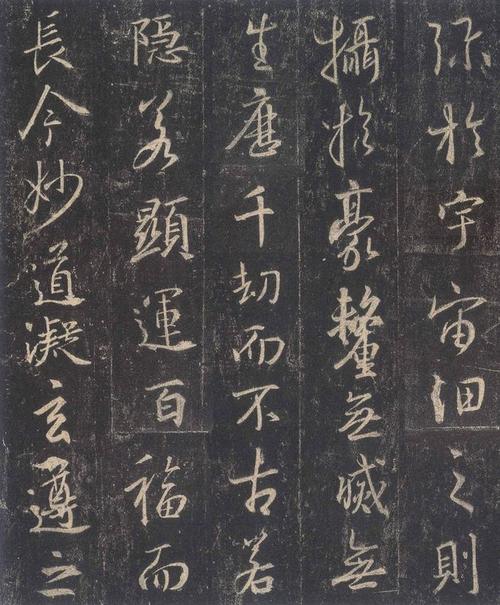 弥於宇宙細之則
攝於豪釐無滅無
生歷千劫而不古若
隱若顯運百福而
長今妙道凝玄遵之